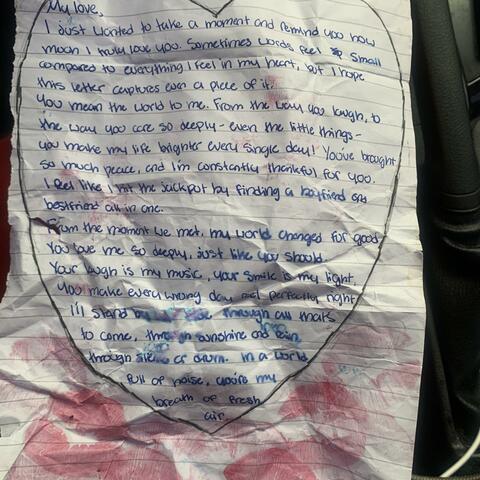 My love,
I just wanted to take a moment and remind you how
much I truly love you. Sometimes words feel so small
compared to everything I feel in my heart, but I hope
this letter captures even a piece of it.
You mean the world to me. From the way you laugh, to
the way you care so deeply - even the little things -
you make my life brighter every single day! You've brought
so much peace, and I'm constantly thankful for you.
I feel like I hit the jackpot by finding a boyfriend and
bestfriend all in one.
From the moment we met, my world changed for good
You love me so deeply, just like you should.
Your laugh is my music, your smile is my light,
You make every wrong day feel perfectly right
I'll stand by your side through all thats
to come, through sunshine and rain,
through silence or drum. In a world
full of noise, you're my
breath of fresh
air.